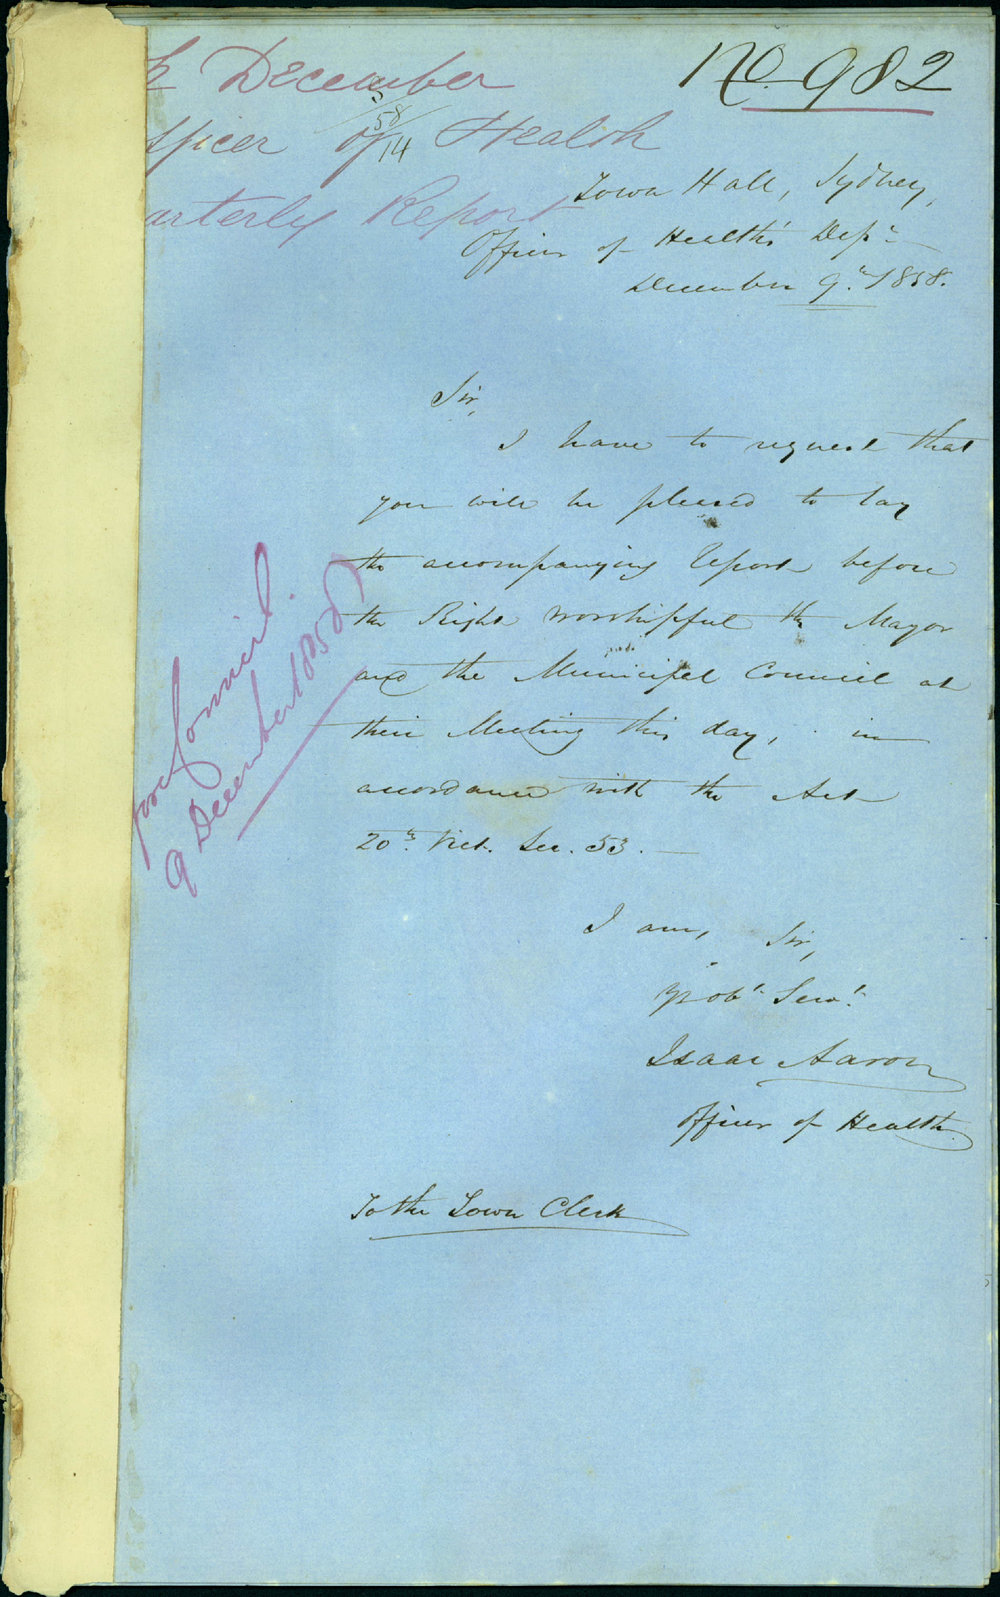 December
No. 982
Officer of Health
58/14
Quarterly Report
Town Hall, Sydney,
Officer of Health's Dept.
December 9th. 1858.
Sir,
I have to request that
you will be pleased to lay
the accompanying Report before
the Right Worshipful the Mayor
and the Municipal Council at
their Meeting this day, in
accordance with the Act
20th. Vict. Sec. 53.
I am, Sir,
Yr obt. Servt.
Isaac Aaron
Officer of Health.
To the Town Clerk
Council.
9 December 1858